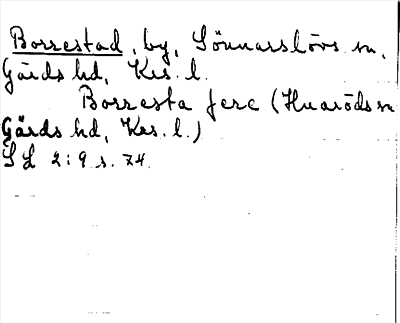 Borrestad, by, Sönnarslövs sn,
Gärds hd, Krs. l.
Borresta fere (Huaröds sn
Gärds hd, Krs. l.)
SL 2:9 s. 74.